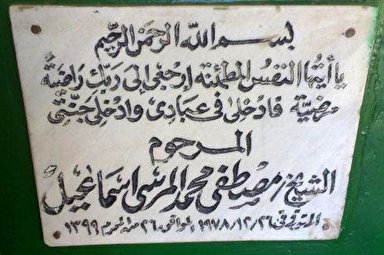 بسم الله الرحمن الرحيم
يا أيتها النفس المطمئنة ارجعى إلى ربك راضية
مرضية فادخلى فى عبادى وادخلى جنتى
المرحوم
الشيخ / مصطفى محمد المرسى اسماعيل
المتوفى ٢٦/١٢/١٩٧٨ الموافق ٢٦ من محرم ١٣٩٩